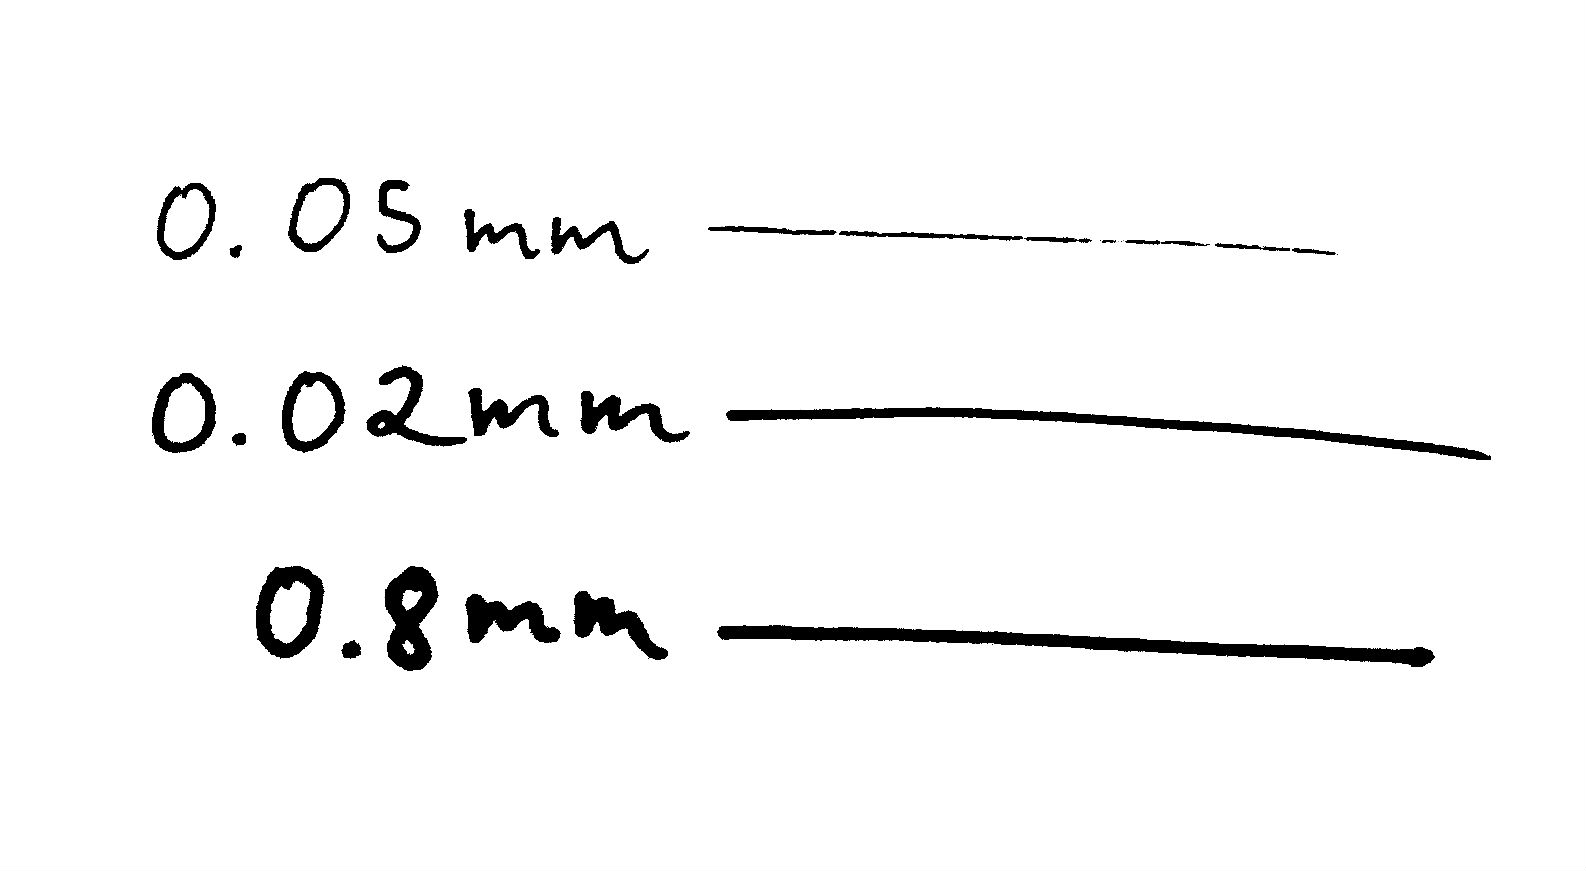 0.05mm
0.02mm
0.8mm